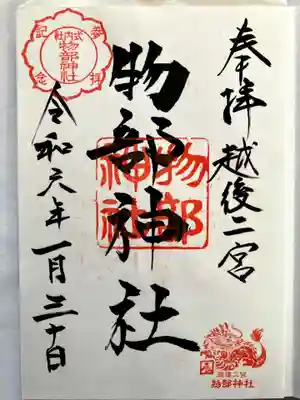 奉拝 越後二宮
物部神社
令和六年一月三十日
参拝
記念
式内社
物部神社
物部
神社
越後二宮
物部神社